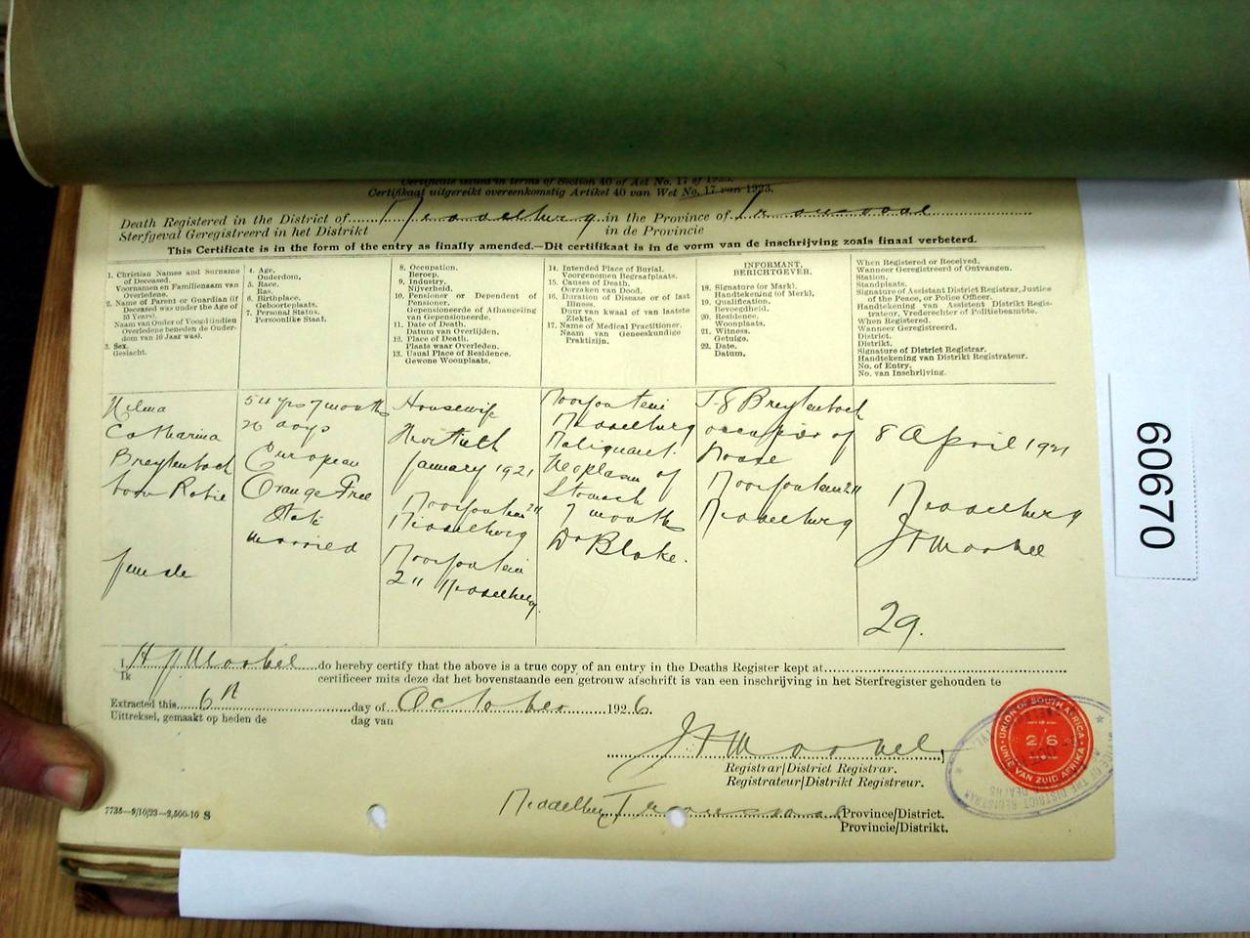 Certificate Issued in terms of Section 40 of Act No. 17 of 1923.
Certifikaat uitgereikt overeenkomstig Artikel 40 van Wet No. 17 van 1923.
Death Registered in the District of Middelburg in the Province of Transvaal
Sterfgeval Geregistreerd in het Distrikt in de Provincie
This Certificate is in the form of the entry as finally amended.—Dit certifikaat is in de vorm van de inschrijving zoals finaal verbeterd.
1. Christian Names and Surname
of Deceased.
Voornamen en Familienaam van
Overledene.
2. Name of Parent or Guardian (if
Deceased was under the Age of
Years).
Naam van Ouder of Voogd (indien
Overledene beneden de Ouder-
dom van 10 Jaar was).
3. Sex.
Geslacht.
4. Age.
Ouderdom.
5. Race.
Ras.
6. Birthplace.
Geboorteplaats.
7. Personal Status.
Persoonlike Staat.
8. Occupation.
Beroep.
9. Industry.
Nijverheid.
10. Pensioner or Dependent of
Pensioner.
Gepensioneerde of Afhangeling
van Gepensioneerde.
11. Date of Death.
Datum van Overlijden.
12. Place of Death.
Plaats waar Overleden.
13. Usual Place of Residence.
Gewone Woonplaats.
14. Intended Place of Burial.
Voorgenomen Begraafplaats.
15. Causes of Death.
Oorzaken van Dood.
16. Duration of Disease or of last
Illness.
Duur van kwaal of van laatste
Ziekte.
17. Name of Medical Practitioner.
Naam van Geneeskundige
Praktizijn.
INFORMANT.
BERICHTGEVER.
18. Signature (or Mark).
Handtekening (of Merk).
19. Qualification.
Bevoegdheid.
20. Residence.
Woonplaats.
21. Witness.
Getuige.
22. Date.
Datum.
When Registered or Received.
Wanneer Geregistreerd of Ontvangen.
Station.
Standplaats.
Signature of Assistant District Registrar, Justice
of the Peace, or Police Officer.
Handtekening van Assistent Distrikt Regis-
trateur, Vrederechter of Politiebeambte.
When Registered.
Wanneer Geregistreerd.
District.
Distrikt.
Signature of District Registrar.
Handtekening van Distrikt Registrateur.
No. of Entry.
No. van Inschrijving.
Catharina
Breytenbach
born
female
54 yrs 7 months
20 days
European
Orange Free
State
married
Housewife
January 1921
Middelburg
Middelburg
Middelburg
Malignant
Neoplasm of
Stomach
7 months
Dr Blake.
Breytenbach
occupier of
house
Middelburg
8 April 1921
Middelburg
29.
I, do hereby certify that the above is a true copy of an entry in the Deaths Register kept at
Ik certificeer mits deze dat het bovenstaande een getrouw afschrift is van een inschrijving in het Sterfregister gehouden te
Extracted this 6th day of October 1926.
Uittreksel, gemaakt op heden de dag van
Registrar/District Registrar.
Registrateur/Distrikt Registreur.
Middelburg Transvaal Province/District.
Provincie/Distrikt.
S
UNION OF SOUTH AFRICA
2/6
UNIE VAN ZUID AFRIKA
60970